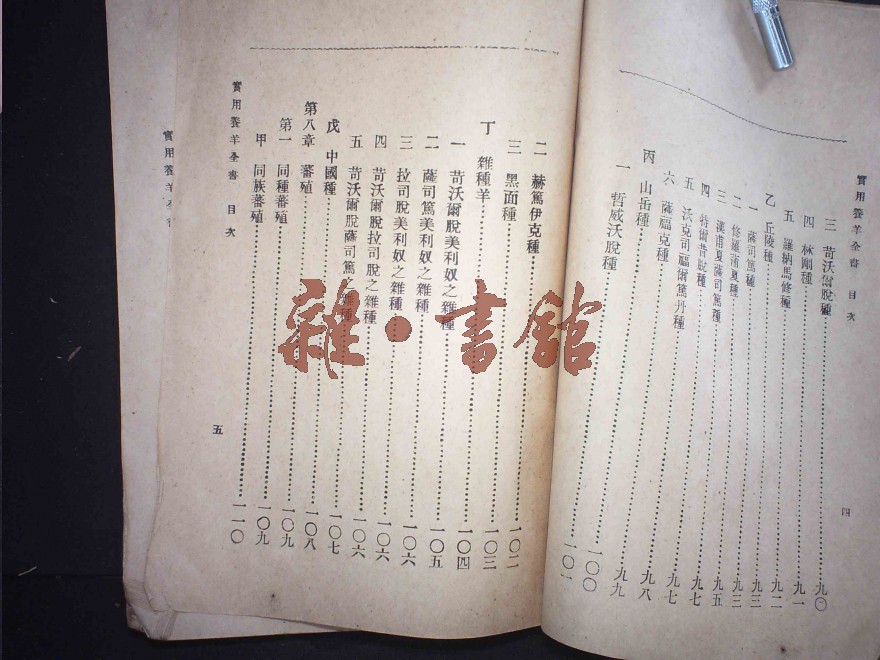 實用養羊全書 目次
三 苛沃爾脫種 九〇
四 林剛種 九一
五 羅納馬修種 九二
乙 丘陵種 九三
一 薩司篤種 九三
二 修羅浦夏種 九五
三 漢甫夏薩司篤種 九七
四 特爾昔脫種 九七
五 沃克司福爾篤丹種 九八
六 薩福克種 九九
丙 山岳種 一〇〇
一 哲威沃脫種 一〇一
四
二 赫篤伊克種 一〇二
三 黑面種 一〇三
丁 雜種羊 一〇四
一 苛沃爾脫美利奴之雜種 一〇五
二 薩司篤美利奴之雜種 一〇六
三 拉司脫美利奴之雜種 一〇六
四 苛沃爾脫拉司脫之雜種 一〇六
五 苛沃爾脫薩司篤之雜種 一〇七
戊 中國種 一〇八
第八章 蕃殖 一〇九
第一 同種蕃殖 一〇九
甲 同族蕃殖 一一〇
實用養羊全書 目次
五
實用養羊全書
雜·書館